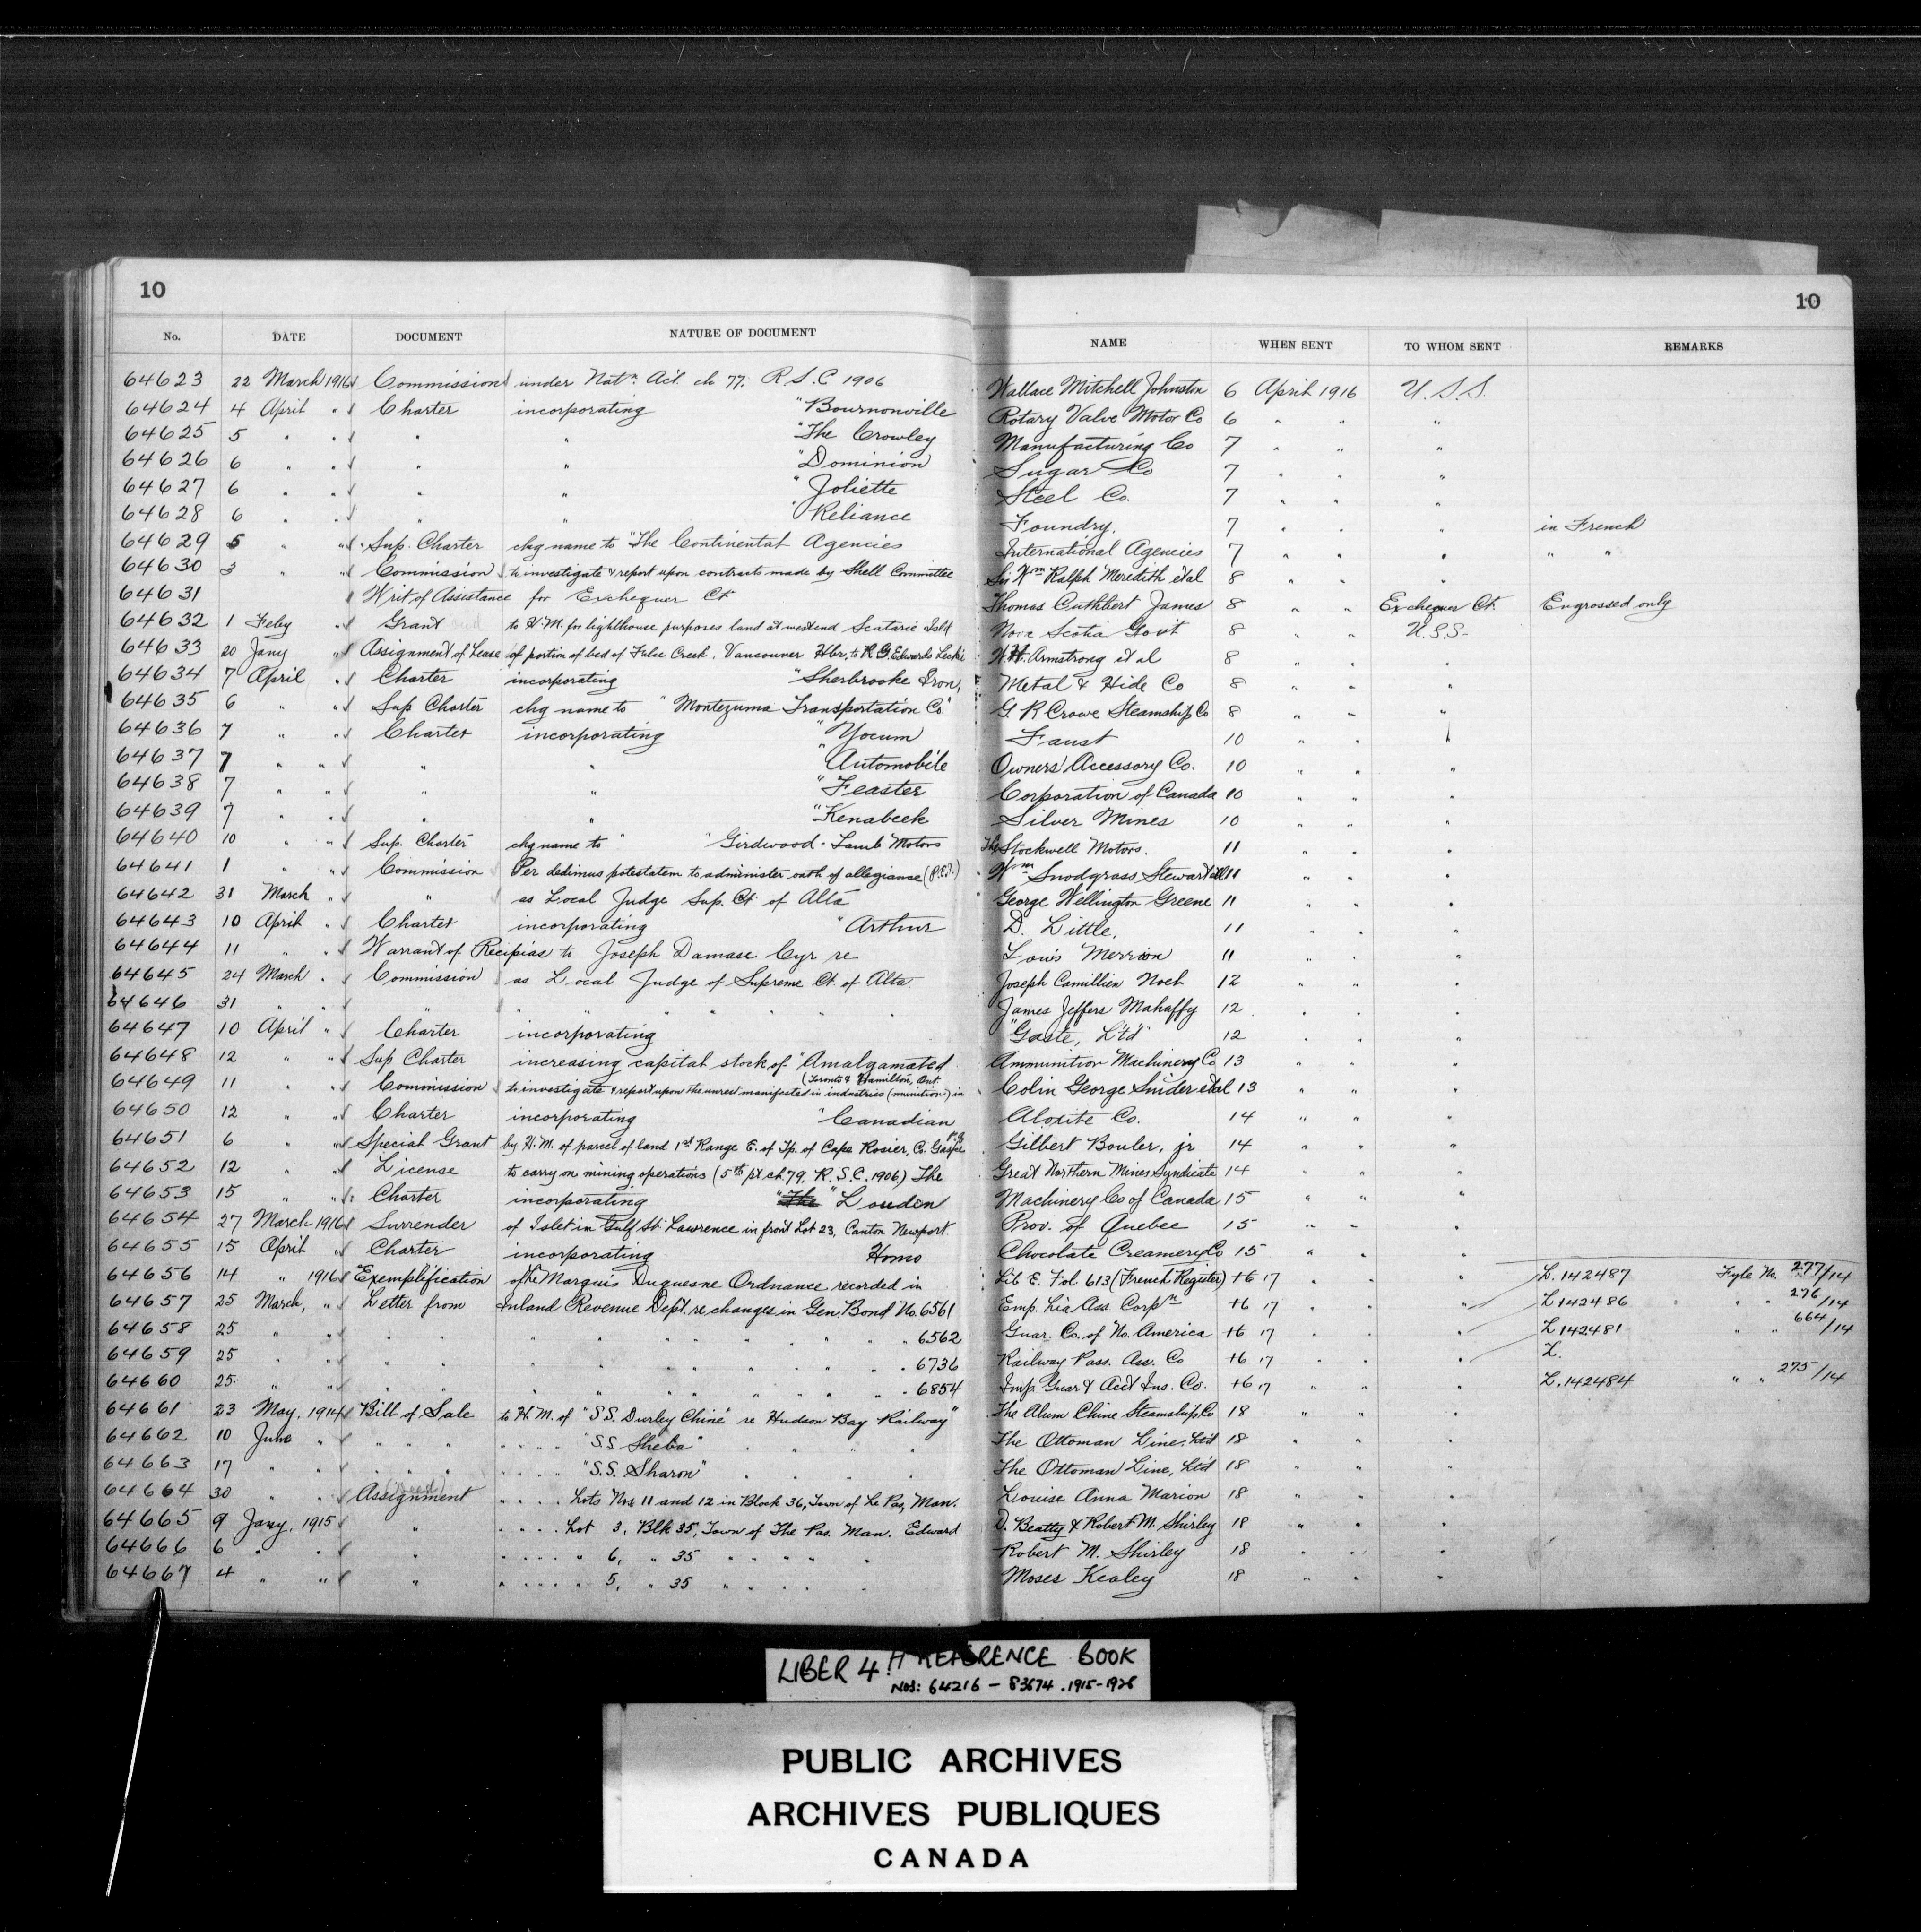 10
10
No. DATE DOCUMENT NATURE OF DOCUMENT NAME WHEN SENT TO WHOM SENT REMARKS
64623 22 March 1916 Commission under Natn. Act. ch 77. R.S.C 1906 Wallace Mitchell Johnston 6 April 1916 U.S.S.
64624 4 April " Charter incorporating "Bournonville Rotary Valve Motor Co 6 " " "
64625 5 " " " " "The Crowley Manufacturing Co 7 " " "
64626 6 " " " " "Dominion Sugar Co 7 " " "
64627 6 " " " " "Joliette Steel Co. 7 " " "
64628 6 " " " " "Reliance Foundry. 7 " " " in French
64629 5 " " Sup. Charter chg name to "The Continental Agencies International Agencies 7 " " " " "
64630 3 " " Commission to investigate & report upon contracts made by Shell Committee Sir Wm Ralph Meredith et al 8 " " "
64631 Writ of Assistance for Exchequer Ct. Thomas Cuthbert James 8 " " Exchequer Ct. Engrossed only
64632 1 Feby " Grant to H.M. for lighthouse purposes land at west end Scatarie Isld Nova Scotia Govt 8 " " U.S.S.
64633 20 Jany " Assignment of Lease of portion of bed of False Creek. Vancouver Hbr. to R.G. Edwards Leckie H.H. Armstrong et al 8 " " "
64634 7 April " Charter incorporating "Sherbrooke Iron, Metal & Hide Co 8 " " "
64635 6 " " Sup Charter chg name to "Montezuma Transportation Co." G.R Crowe Steamship Co 8 " " "
64636 7 " " Charter incorporating "Yocum Faust 10 " " "
64637 7 " " " " "Automobile Owners' Accessory Co. 10 " " "
64638 7 " " " " "Feaster Corporation of Canada 10 " " "
64639 7 " " " " "Kenabeek Silver Mines 10 " " "
64640 10 " " Sup. Charter chg name to " "Girdwood-Lamb Motors The Stockwell Motors. 11 " " "
64641 1 " " Commission Per dedimus potestatem to administer oath of allegiance (P.E.I.) Wm Snodgrass Stewart et al 11 " " "
64642 31 March " " as Local Judge Sup. Ct. of Alta George Wellington Greene 11 " " "
64643 10 April " Charter incorporating "Arthur D. Little, 11 " " "
64644 11 " " Warrant of Recipias to Joseph Damase Cyr re Louis Merrion 11 " " "
64645 24 March " Commission as Local Judge of Supreme Ct. of Alta. Joseph Camillien Noel 12 " " "
64646 31 " " " " " " " " " James Jeffers Mahaffy 12 " " "
64647 10 April " Charter incorporating "Gaste, Ltd" 12 " " "
64648 12 " " Sup Charter increasing capital stock of "Amalgamated Ammunition Machinery Co 13 " " "
64649 11 " " Commission to investigate & report upon the unrest manifested in industries (munition) in (Toronto & Hamilton, Ont. Colin George Snider et al 13 " " "
64650 12 " " Charter incorporating "Canadian Aloxite Co. 14 " " "
64651 6 " " Special Grant by H.M. of parcel of land 1st Range E. of Tp. of Cape Rosier, C. Gaspe P.Q. Gilbert Bouler, jr 14 " " "
64652 12 " " License to carry on mining operations (5th pt ch. 79. R.S.C. 1906) The Great Northern Mines Syndicate 14 " " "
64653 15 " " Charter incorporating "The "Louden Machinery Co of Canada 15 " " "
64654 27 March 1916 Surrender of Islet in Gulf St. Lawrence in front Lot 23, Canton Newport. Prov. of Quebec 15 " " "
64655 15 April " Charter incorporating Homo Chocolate Creamery Co 15 " " "
64656 14 " 1916 Exemplification of the Marquis Duquesne Ordnance recorded in Lib E. Fol. 613 (French Register) 16 17 " " " L. 142487 Fyle No. 277/14
64657 25 March, " Letter from Inland Revenue Dept. re changes in Gen. Bond No. 6561 Emp. Lia Ass. Corpn 16 17 " " " L 142486 " " 276/14
64658 25 " " " " " " " " " " 6562 Guar. Co. of No. America 16 17 " " " L 142481 " " 664/14
64659 25 " " " " " " " " " " 6736 Railway Pass. Ass. Co 16 17 " " " L.
64660 25 " " " " " " " " " " 6854 Imp. Guar & Acct Ins. Co. 16 17 " " " L. 142484 " " 275/14
64661 23 May, 1914 Bill of Sale to H.M. of "S.S. Durley Chine" re Hudson Bay Railway" The Alum Chine Steamship Co 18 " " "
64662 10 June " " " " " " " " "S.S. Sheba" " " " " The Ottoman Line, Ltd 18 " " "
64663 17 " " " " " " " " " "S.S. Sharon" " " " " The Ottoman Line, Ltd 18 " " "
64664 30 " " Assignment (Deed) " " " " Lots Nos 11 and 12 in Block 36, Town of Le Pas, Man. Louise Anna Marion 18 " " "
64665 9 Jany. 1915 " " " " " Lot 3, Blk 35, Town of The Pas. Man. Edward D. Beatty & Robert M. Shirley 18 " " "
64666 6 " " " " " " " " 6, " 35 " " " " " Robert M. Shirley 18 " " "
64667 4 " " " " " " " " 5, " 35 " " " " " Moses Kealey 18 " " "
LIBER 4. H REFERENCE BOOK
NOS: 64216 - 83674 . 1915-1926
PUBLIC ARCHIVES
ARCHIVES PUBLIQUES
CANADA